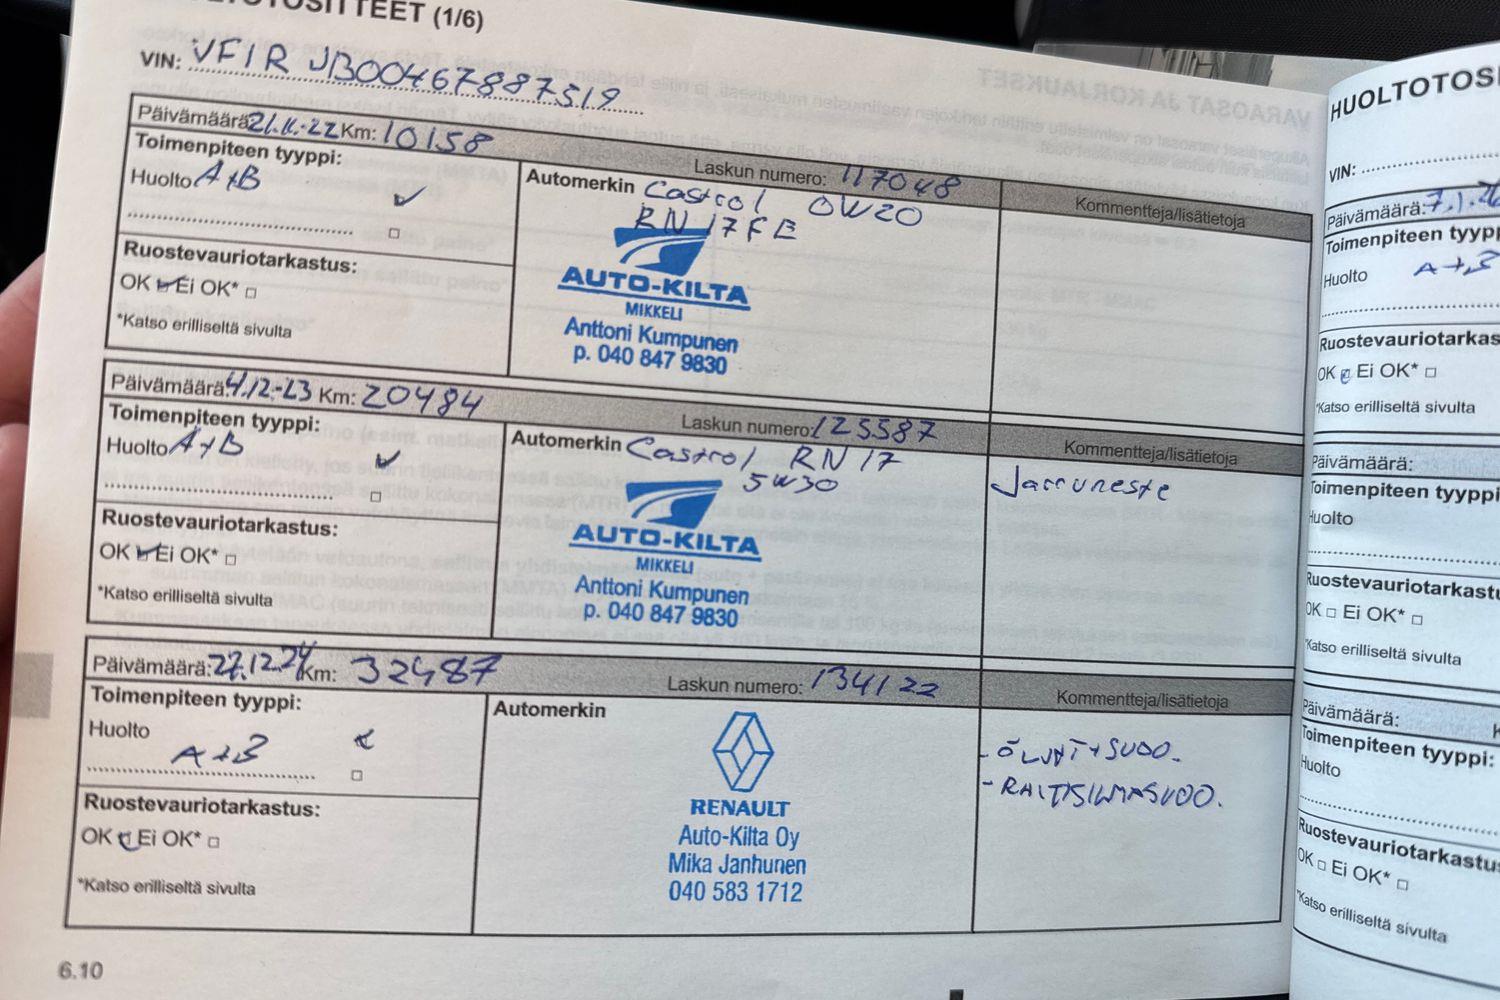 HUOLTOTOSITTEET (1/6)
VIN: VF1RJB00467887519
Päivämäärä: 21.11.-22 Km: 10158
Laskun numero: 117048
Kommentteja/lisätietoja
Toimenpiteen tyyppi:
Huolto A+B
Automerkin Castrol 0W20
RN17FE
AUTO-KILTA
MIKKELI
Anttoni Kumpunen
p. 040 847 9830
Ruostevauriotarkastus:
OK Ei OK*
*Katso erilliseltä sivulta
Päivämäärä: 4.12.-23 Km: 20484
Laskun numero: 125587
Kommentteja/lisätietoja
Toimenpiteen tyyppi:
Huolto A+B
Automerkin Castrol RN17
5W30
Jarruneste
AUTO-KILTA
MIKKELI
Anttoni Kumpunen
p. 040 847 9830
Ruostevauriotarkastus:
OK Ei OK*
*Katso erilliseltä sivulta
Päivämäärä: 27.12.24 Km: 32487
Laskun numero: 134122
Kommentteja/lisätietoja
Toimenpiteen tyyppi:
Huolto
A+B
Automerkin
- ÖLJYT+SUOD.
- RAITISILMASUOD.
RENAULT
Auto-Kilta Oy
Mika Janhunen
040 583 1712
Ruostevauriotarkastus:
OK Ei OK*
*Katso erilliseltä sivulta
6.10
VARAOSAT JA KORJAUKSET
HUOLTOTOSI
VIN:
Päivämäärä: 7.1.26
Toimenpiteen tyypp
Huolto A+B
Ruostevauriotarkas
OK Ei OK*
*Katso erilliseltä sivulta
Päivämäärä:
Toimenpiteen tyyppi
Huolto
Ruostevauriotarkastu
OK Ei OK*
*Katso erilliseltä sivulta
Päivämäärä: K
Toimenpiteen tyyppi:
Huolto
Ruostevauriotarkastus
OK Ei OK*
*Katso erilliseltä sivulta